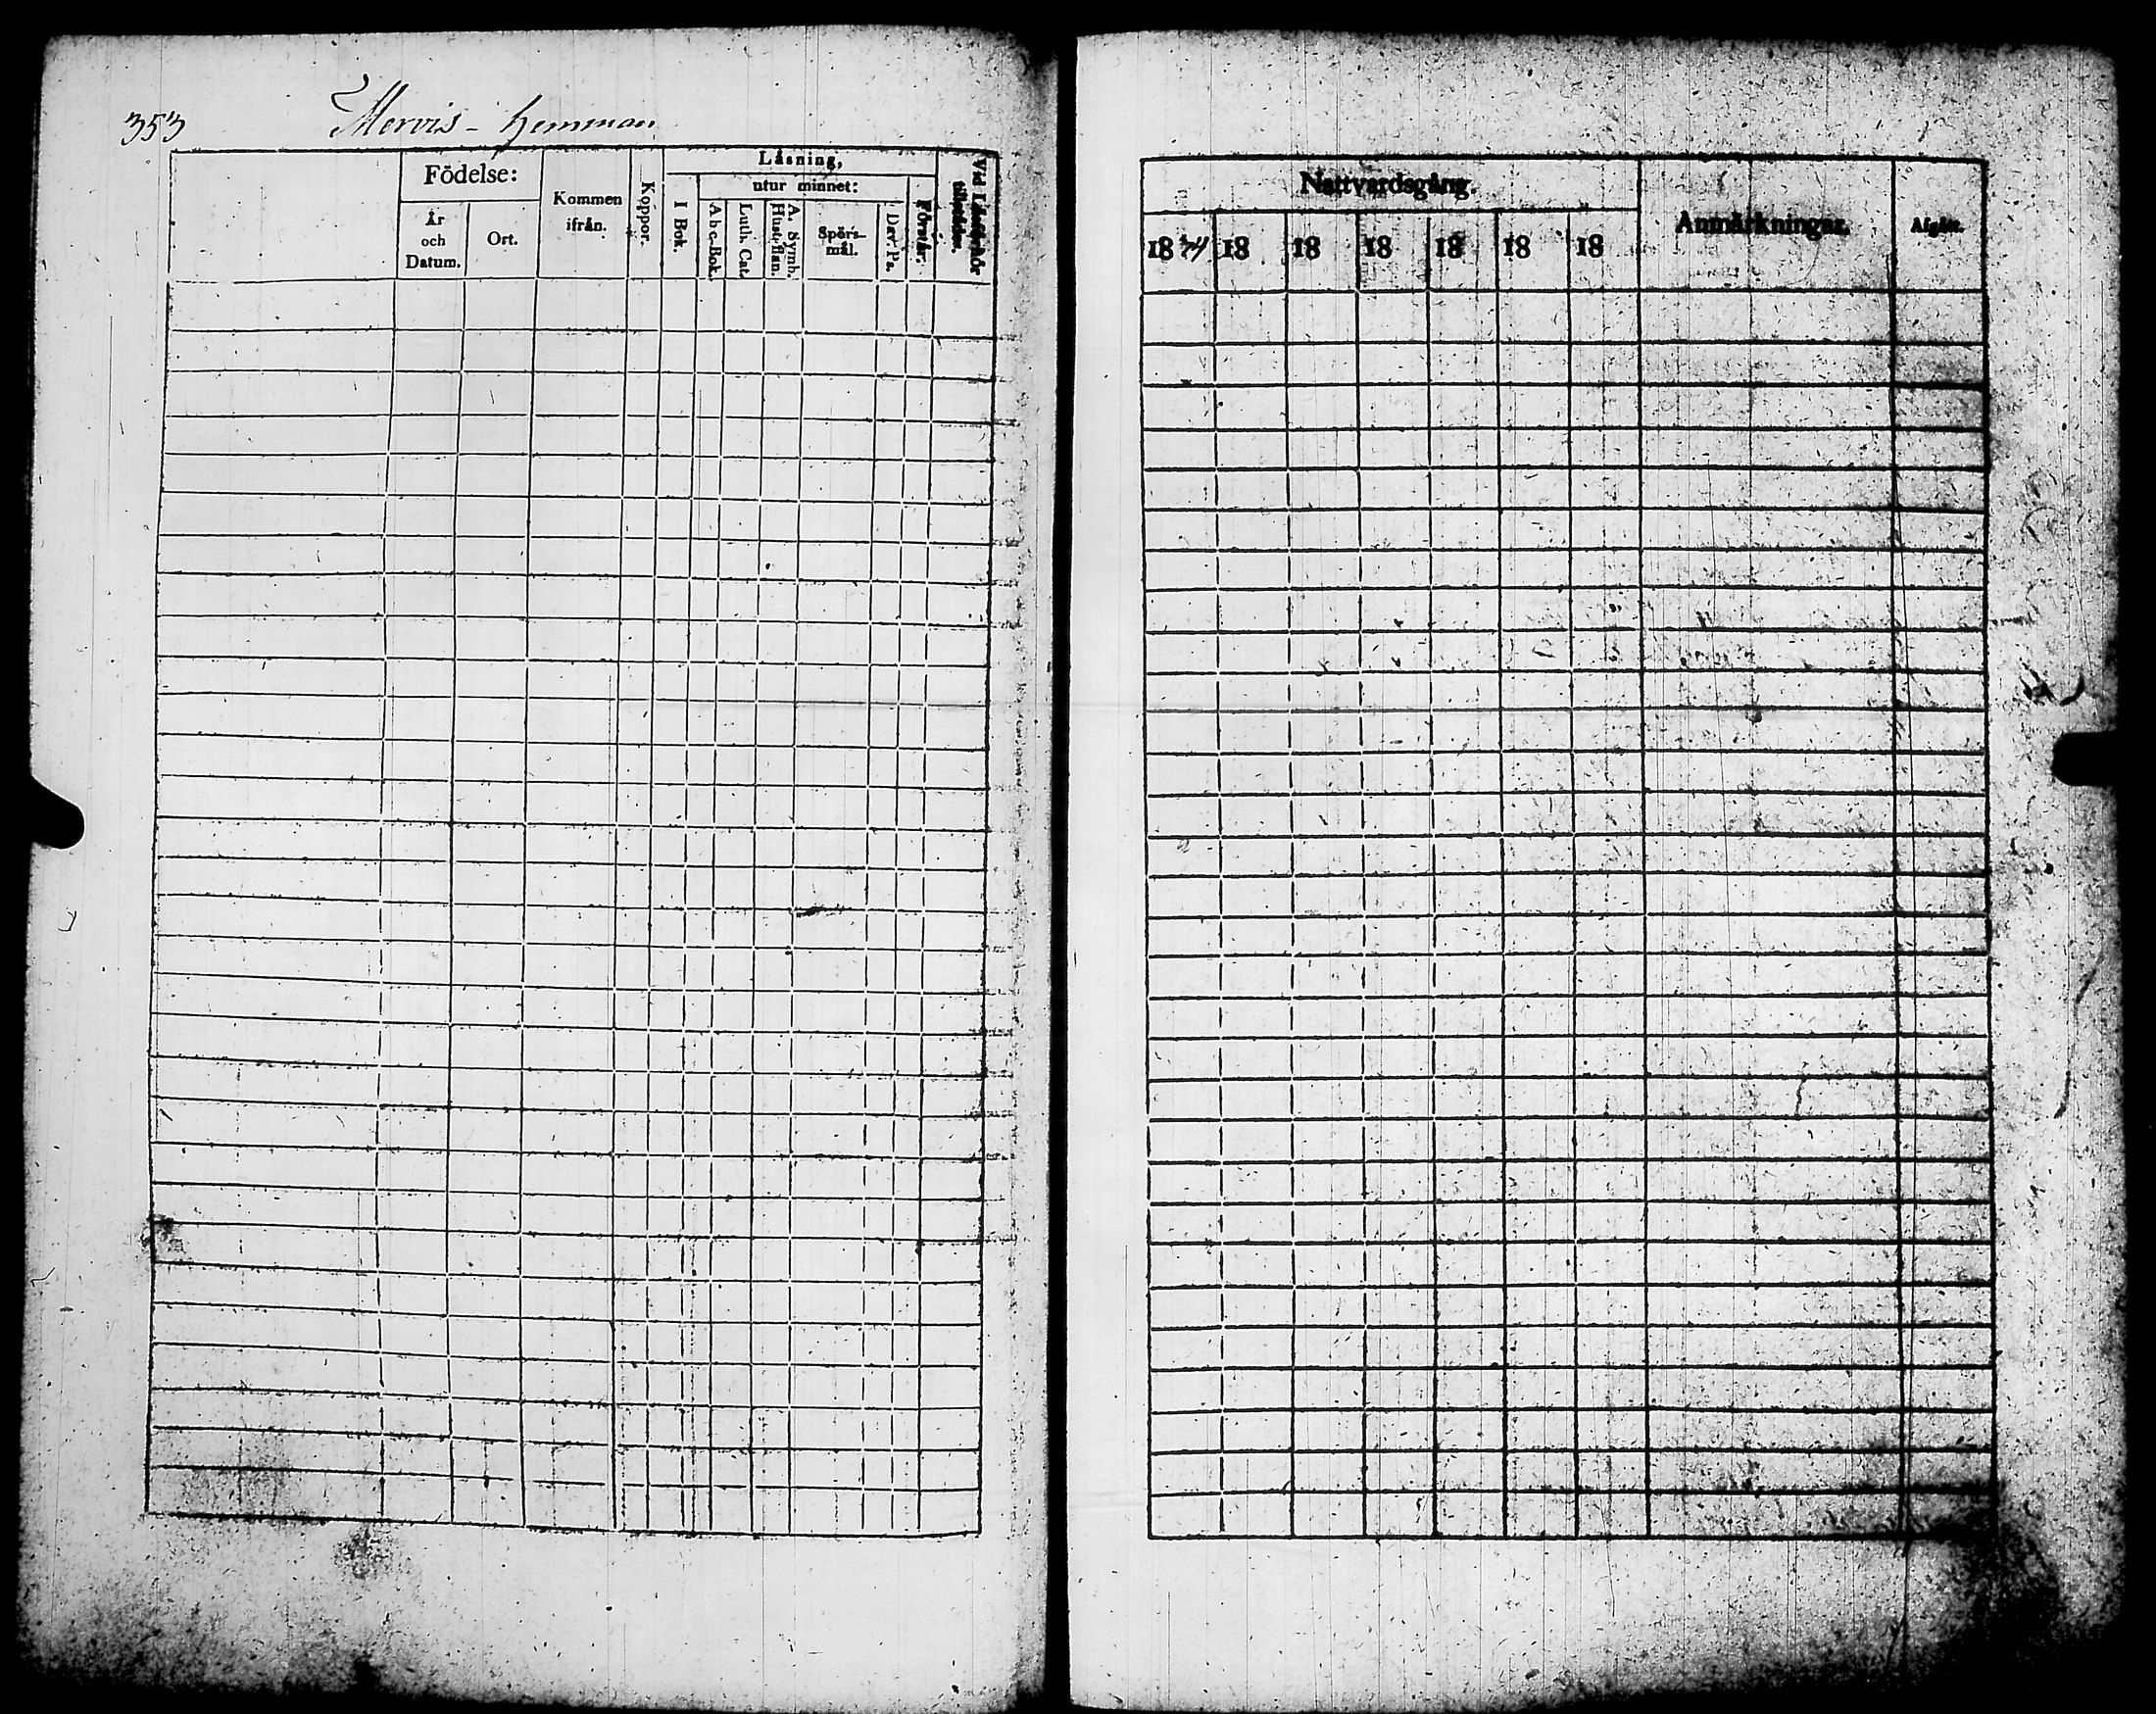 353
Mervis - hemman
Födelse:
År
och
Datum.
Ort.
Kommen
ifrån.
Koppor.
Låsning,
I Bok.
utur minnet:
A b c-Bok.
Luth. Cat.
A. Symb.
Hust. flan.
Spörs-
mål.
Dav. Ps.
Förstår.
Vid Läsförhör
tillstädes.
Nattvardsgång.
18 34
18
18
18
18
18
18
Anmärkningar.
Afgått.